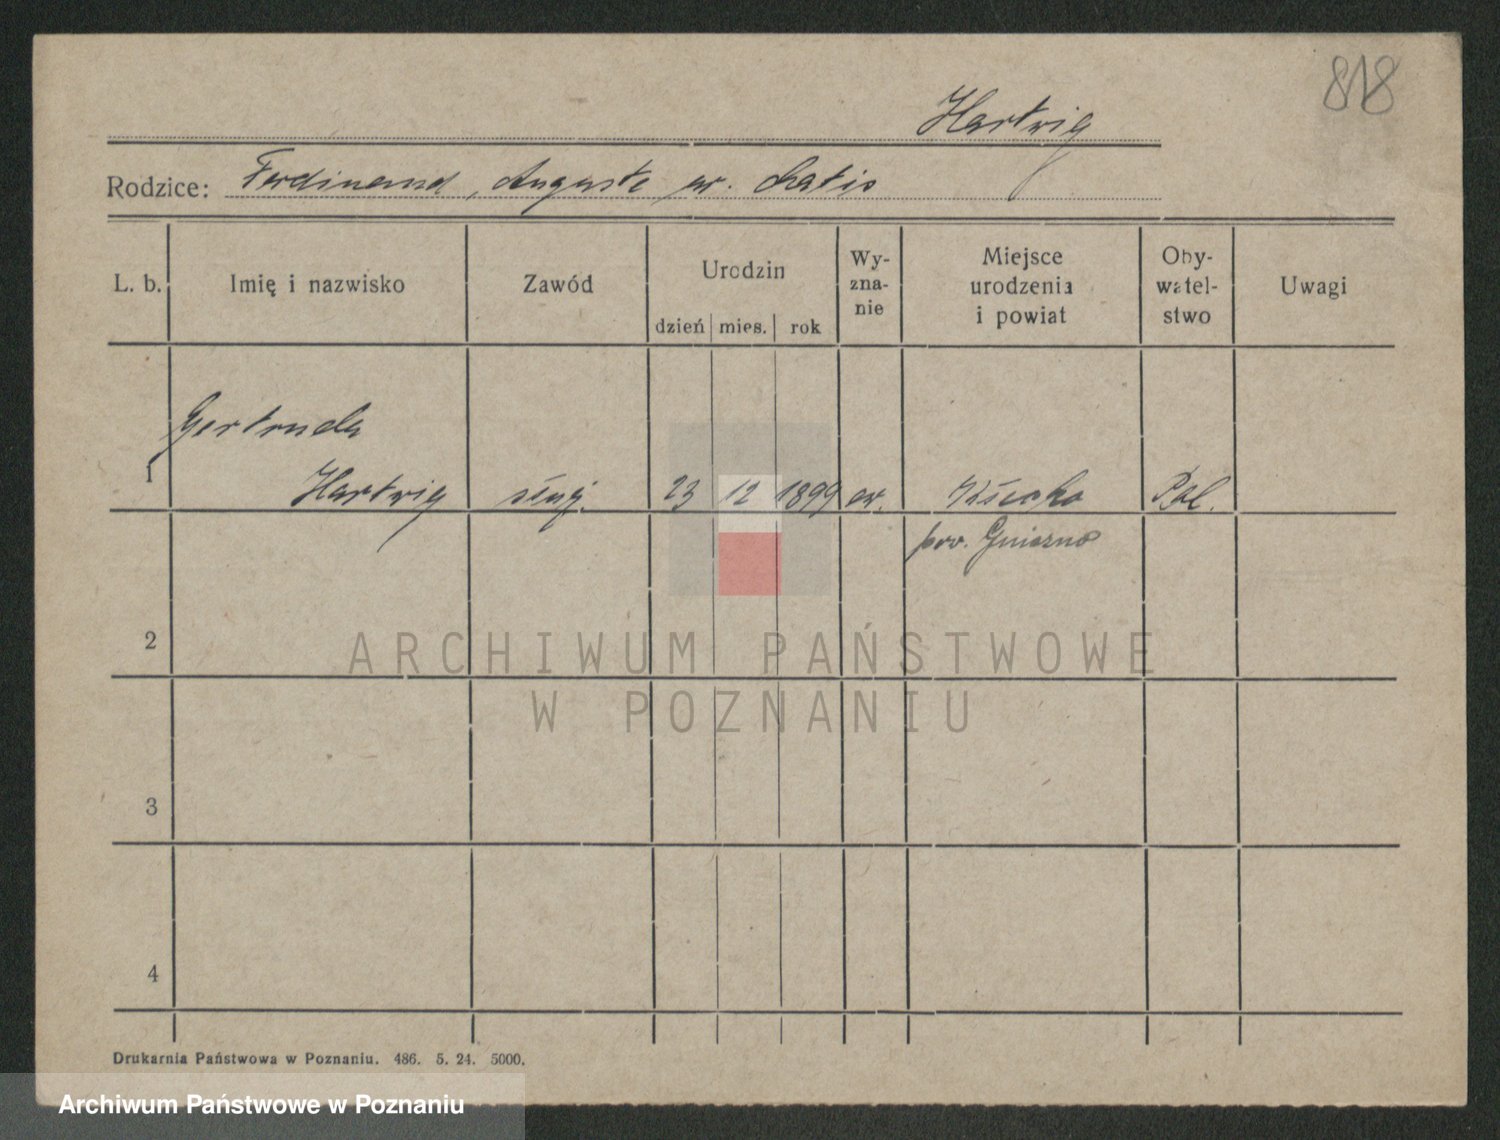 818
Hartwig
Rodzice: Ferdinand, Auguste
L. b. Imię i nazwisko Zawód Urodzin dzień mies. rok Wy-znanie Miejsce urodzenia i powiat Oby-watel-stwo Uwagi
Gertruda
1 Hartwig służ. 23 12 1899 ew. Kłecko Pol.
pow. Gniezno
2
ARCHIWUM PAŃSTWOWE
W POZNANIU
3
4
Drukarnia Państwowa w Poznaniu. 486. 5. 24. 5000.
Archiwum Państwowe w Poznaniu